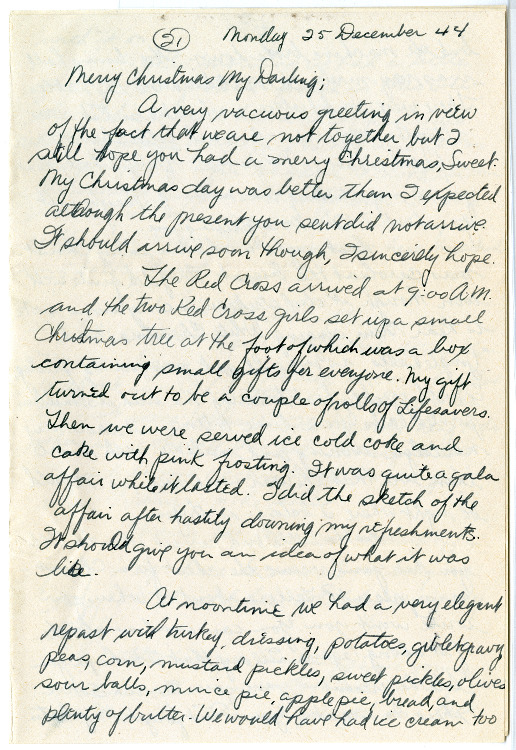 21 Monday 25 December 44
Merry Christmas My Darling;
A very vacuous greeting in view
of the fact that we are not together but I
still hope you had a merry Christmas, Sweet.
My Christmas day was better than I expected
although the present you sent did not arrive.
It should arrive soon though, I sincerely hope.
The Red Cross arrived at 9:00 A.M.
and the two Red Cross girls set up a small
Christmas tree at the foot of which was a box
containing small gifts for everyone. My gift
turned out to be a couple of rolls of Lifesavers.
Then we were served ice cold coke and
cake with pink frosting. It was quite a gala
affair while it lasted. I did the sketch of the
affair after hastily downing my refreshments.
It should give you an idea of what it was
like.
At noontime we had a very elegant
repast with turkey, dressing, potatoes, giblet gravy
peas, corn, mustard pickles, sweet pickles, olives
sour balls, mince pie, apple pie, bread, and
plenty of butter. We would have had ice cream too